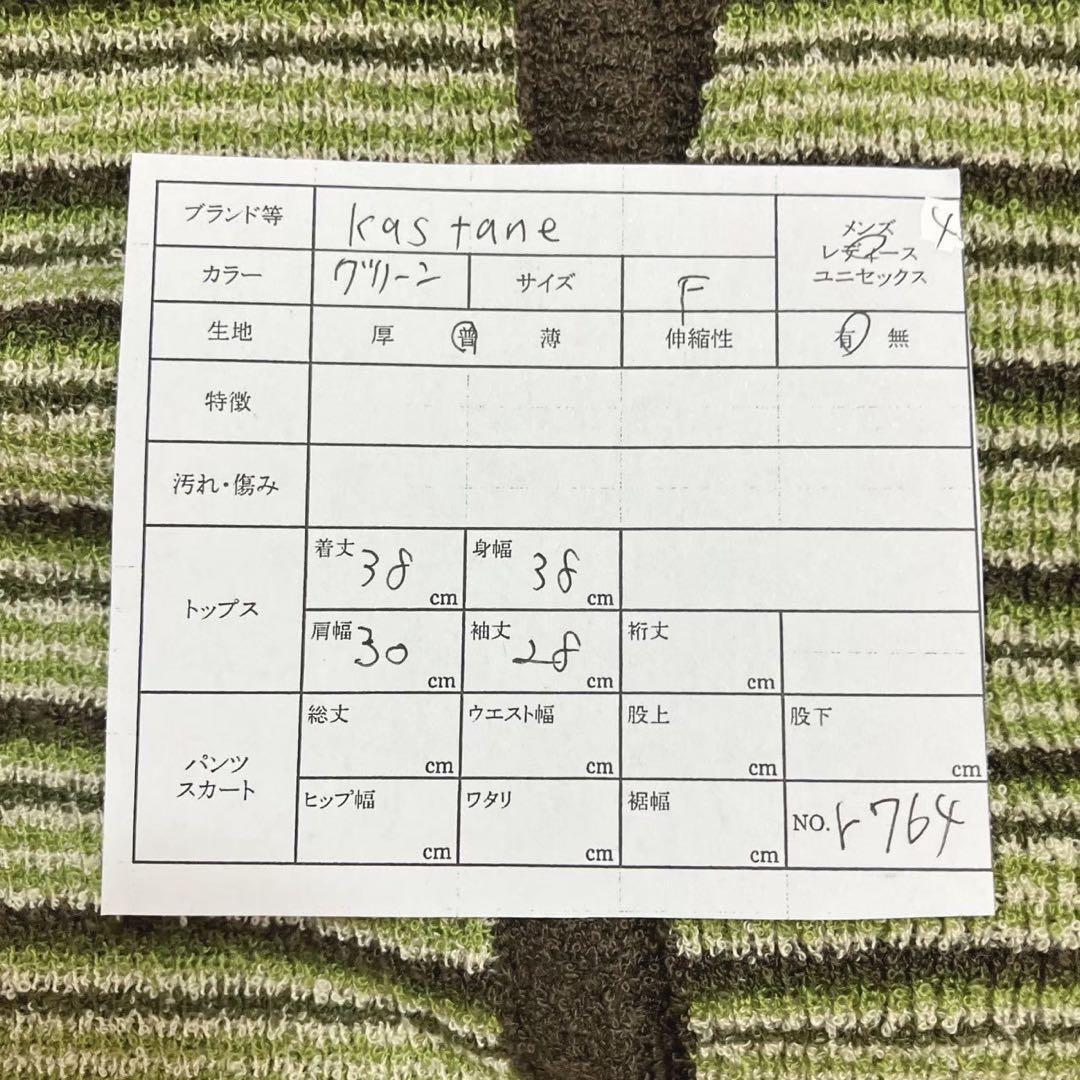 ブランド等 kastane メンズ レディース ユニセックス 4
カラー グリーン サイズ F
生地 厚 普 薄 伸縮性 有 無
特徴
汚れ・傷み
トップス
着丈 38 cm 身幅 38 cm
肩幅 30 cm 袖丈 28 cm 裄丈 cm
パンツ
スカート
総丈 cm ウエスト幅 cm 股上 cm 股下 cm
ヒップ幅 cm ワタリ cm 裾幅 cm NO. r764